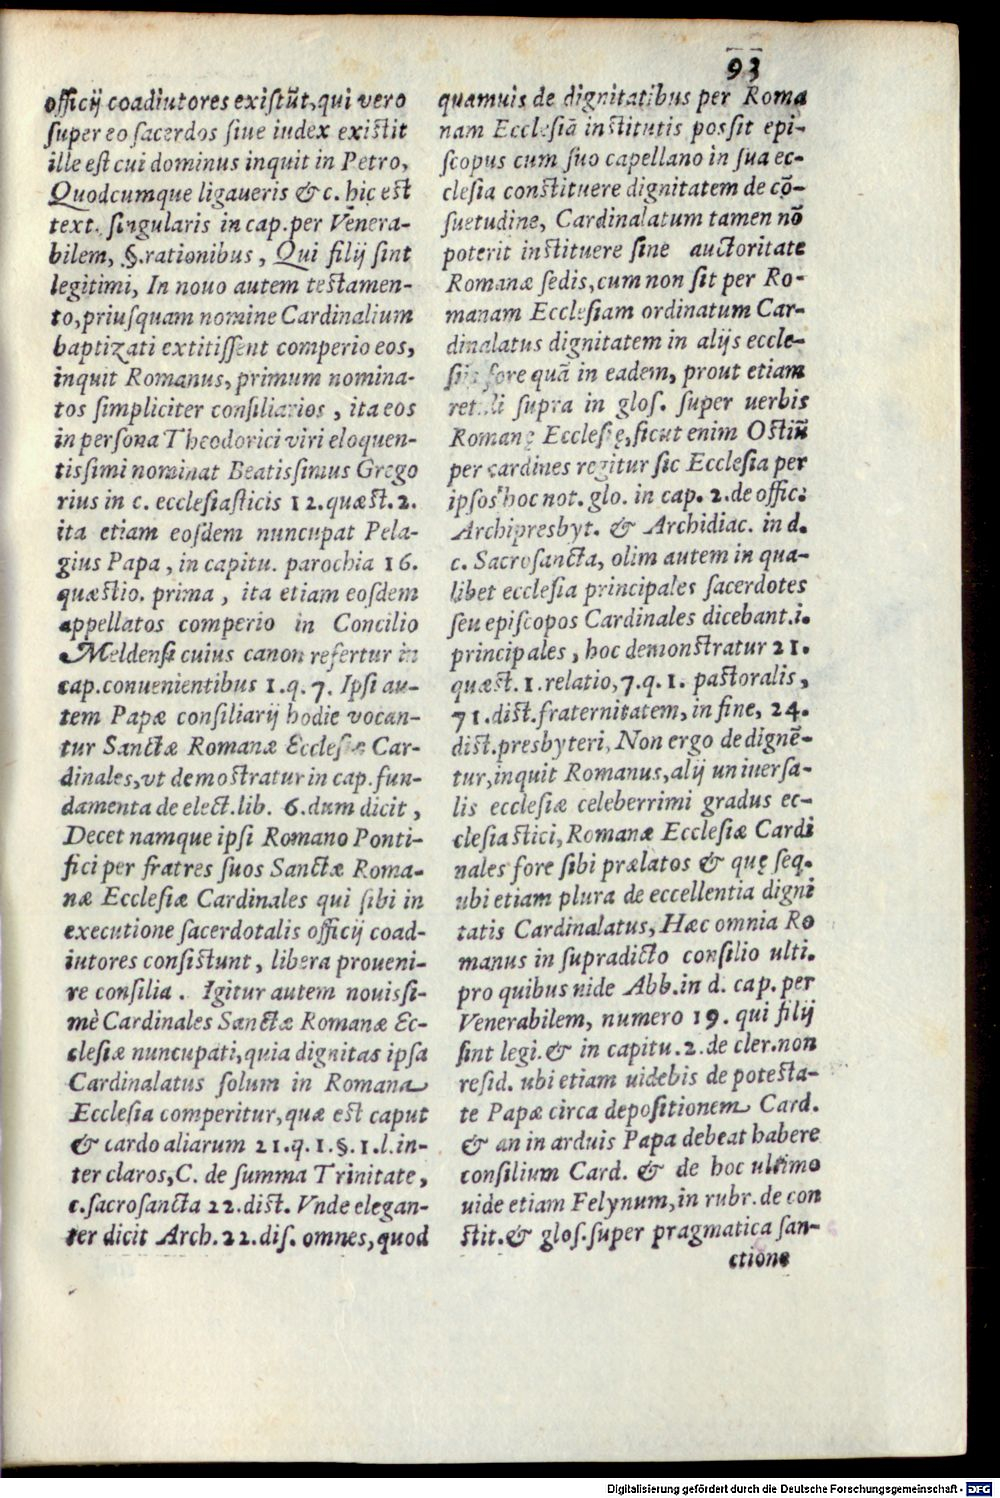 93
officij coadiutores existūt, qui vero
super eo sacerdos siue iudex existit
ille est cui dominus inquit in Petro,
Quodcumque ligaueris & c. hic est
text. singularis in cap. per Venera-
bilem, §. rationibus, Qui filij sint
legitimi, In nouo autem testamen-
to, priusquam nomine Cardinalium
baptizati extitissent comperio eos,
inquit Romanus, primum nomina-
tos simpliciter consiliarios, ita eos
in persona Theodorici viri eloquen-
tissimi nominat Beatissimus Grego
rius in c. ecclesiasticis 12. quæst. 2.
ita etiam eosdem nuncupat Pela-
gius Papa, in capitu. parochia 16.
quæstio. prima, ita etiam eosdem
appellatos comperio in Concilio
Meldensi cuius canon refertur in
cap. conuenientibus 1. q. 7. Ipsi au-
tem Papæ consiliarij hodie vocan-
tur Sanctæ Romanæ Ecclesiæ Car-
dinales, vt demostratur in cap. fun-
damenta de elect. lib. 6. dum dicit,
Decet namque ipsi Romano Ponti-
fici per fratres suos Sanctæ Roma-
næ Ecclesiæ Cardinales qui sibi in
executione sacerdotalis officij coad-
iutores consistunt, libera proueni-
re consilia. Igitur autem nouissi-
mè Cardinales Sanctæ Romanæ Ec-
clesiæ nuncupati, quia dignitas ipsa
Cardinalatus solum in Romana
Ecclesia comperitur, quæ est caput
& cardo aliarum 21. q. 1. §. 1. l. in-
ter claros, C. de summa Trinitate,
c. sacrosancta 22. dist. Vnde elegan-
ter dicit Arch. 22. dis. omnes, quod
quamuis de dignitatibus per Roma
nam Ecclesiā institutis possit epi-
scopus cum suo capellano in sua ec-
clesia constituere dignitatem de cō-
suetudine, Cardinalatum tamen nō
poterit instituere sine auctoritate
Romanæ sedis, cum non sit per Ro-
manam Ecclesiam ordinatum Car-
dinalatus dignitatem in alijs eccle-
sijs fore quā in eadem, prout etiam
retuli supra in glos. super uerbis
Romanę Ecclesię, sicut enim Ostiū
per cardines regitur sic Ecclesia per
ipsos hoc not. glo. in cap. 2. de offic.
Archipresbyt. & Archidiac. in d.
c. Sacrosancta, olim autem in qua-
libet ecclesia principales sacerdotes
seu episcopos Cardinales dicebant. i.
principales, hoc demonstratur 21.
quæst. 1. relatio, 7. q. 1. pastoralis,
71. dist. fraternitatem, in fine, 24.
dist. presbyteri, Non ergo dedignē-
tur, inquit Romanus, alij uniuersa-
lis ecclesiæ celeberrimi gradus ec-
clesiastici, Romanæ Ecclesiæ Cardi
nales fore sibi prælatos & quę seq.
ubi etiam plura de eccellentia digni
tatis Cardinalatus, Hæc omnia Ro
manus in supradicto consilio ulti.
pro quibus uide Abb. in d. cap. per
Venerabilem, numero 19. qui filij
sint legi. & in capitu. 2. de cler. non
resid. ubi etiam uidebis de potesta-
te Papæ circa depositionem Card.
& an in arduis Papa debeat habere
consilium Card. & de hoc ultimo
uide etiam Felynum, in rubr. de con
stit. & glos. super pragmatica san-
ctione
Digitalisierung gefördert durch die Deutsche Forschungsgemeinschaft - DFG